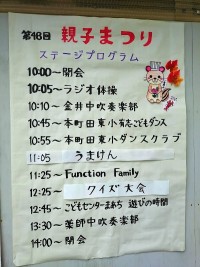 第46回 親子まつり
ステージプログラム
10:00～開会
10:05～ラジオ体操
10:10～金井中吹奏楽部
10:45～本町田東小有志こどもダンス
10:55～本町田東小ダンスクラブ
11:05 うまけん
11:25～Function Family
12:25～クイズ大会
12:45～こどもセンターまあち 遊びの時間
13:30～薬師中吹奏楽部
14:00～閉会